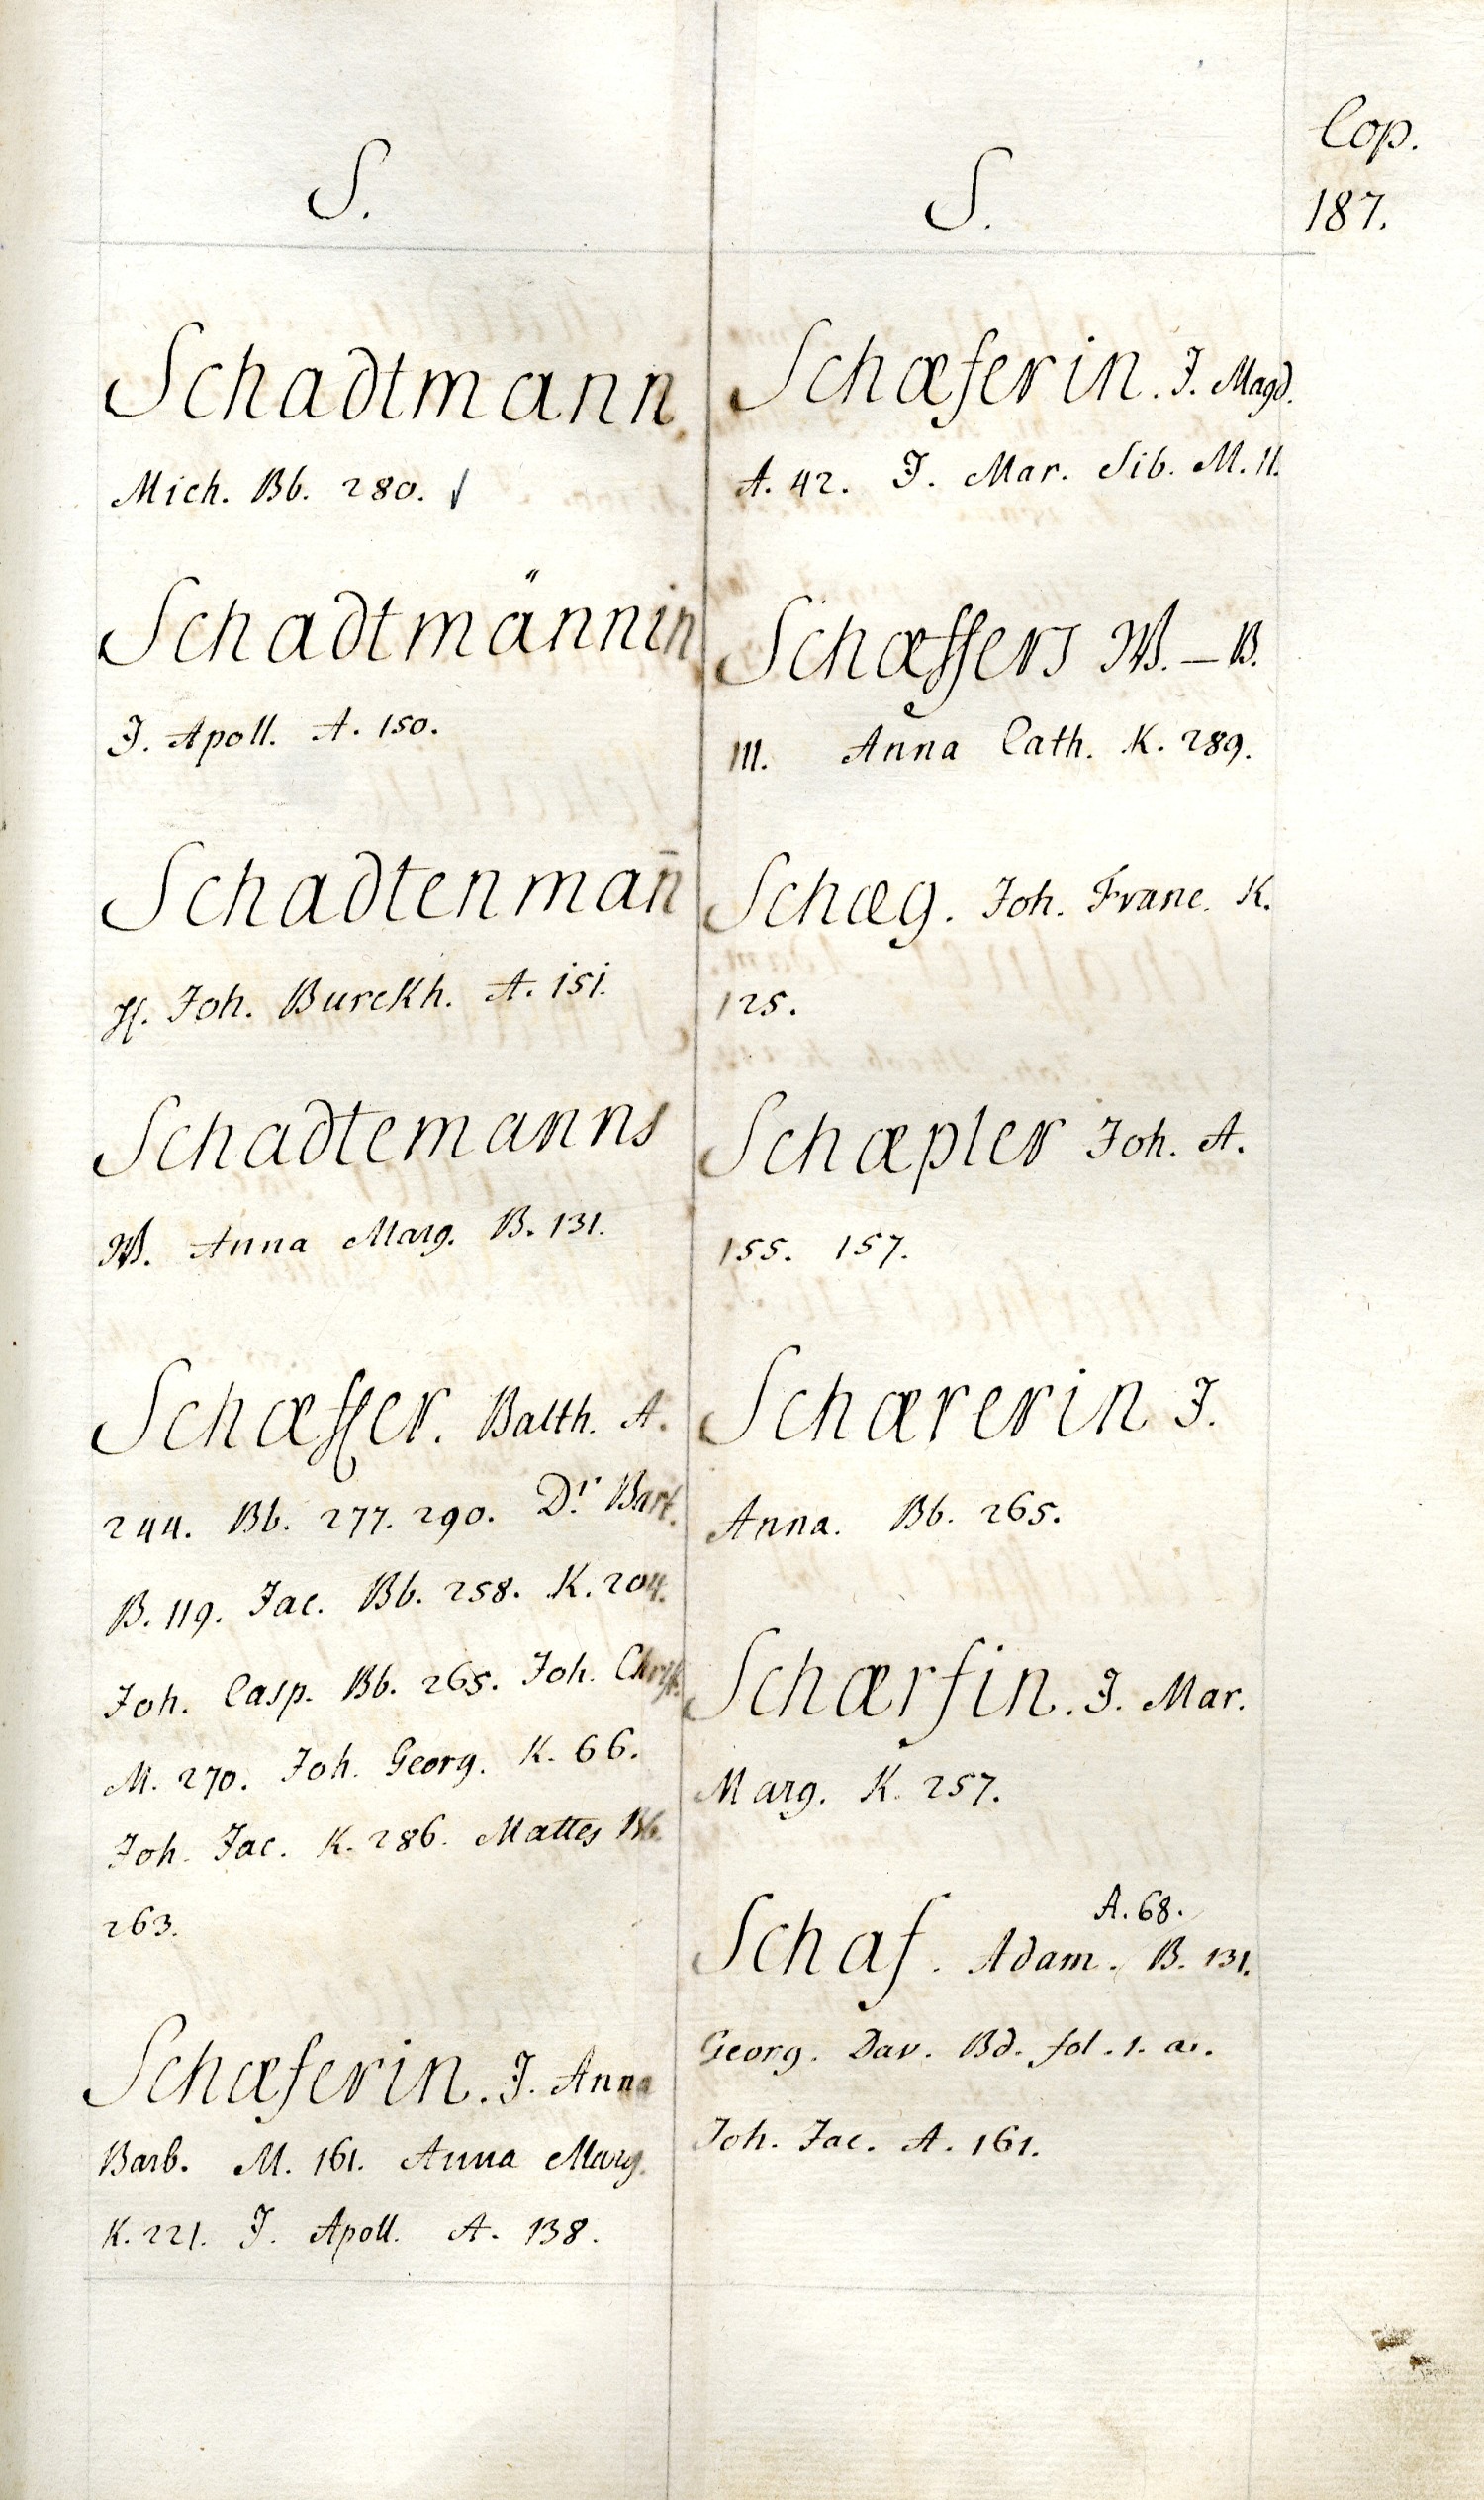 Cop.
187.
S.
Schadtmann
Mich. Bb. 280.
Schadtmännin
J. Apoll. A. 150.
Schadtenman̄
H. Joh. Burckh. A. 151.
Schadtemanns
W. Anna Marg. B. 131.
Schæffer. Balth. A.
244. Bb. 277. 290. Dr. Bart.
B. 119. Jac. Bb. 258. K. 204.
Joh. Casp. Bb. 265. Joh. Christ.
M. 270. Joh. Georg. K. 66.
Joh. Jac. K. 286. Mattes Bb.
263.
Schæferin. J. Anna
Barb. M. 161. Anna Marg.
K. 221. J. Apoll. A. 138.
S.
Schæferin. J. Magd.
A. 42. J. Mar. Sib. M. 11.
Schæffers W. — B.
111. Anna Cath. K. 289.
Schæg. Joh. Franc. K.
125.
Schæpler Joh. A.
155. 157.
Schærerin J.
Anna. Bb. 265.
Schærfin. J. Mar.
Marg. K. 257.
A. 68.
Schaf. Adam. B. 131.
Georg. Dav. Bd. fol. 1. a.
Joh. Jac. A. 161.